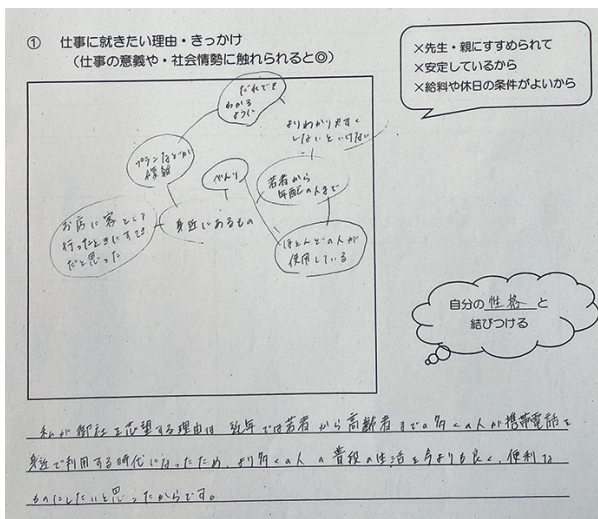 ① 仕事に就きたい理由・きっかけ
（仕事の意義や・社会情勢に触れられると◎）
×先生・親にすすめられて
×安定しているから
×給料や休日の条件がよいから
だれでも
わかる
ように
よりわかりやすく
しないといけない
プランなどが
複雑
べんり
若者から
年配の人まで
お店に客として
行ったときにすてき
だと思った
身近にあるもの
ほとんどの人が
使用している
自分の性格と
結びつける
私が御社を志望する理由は、近年では若者から高齢者までの多くの人が携帯電話を
身近で利用する時代になったため、より多くの人の普段の生活を今よりも良く、便利な
ものにしたいと思ったからです。